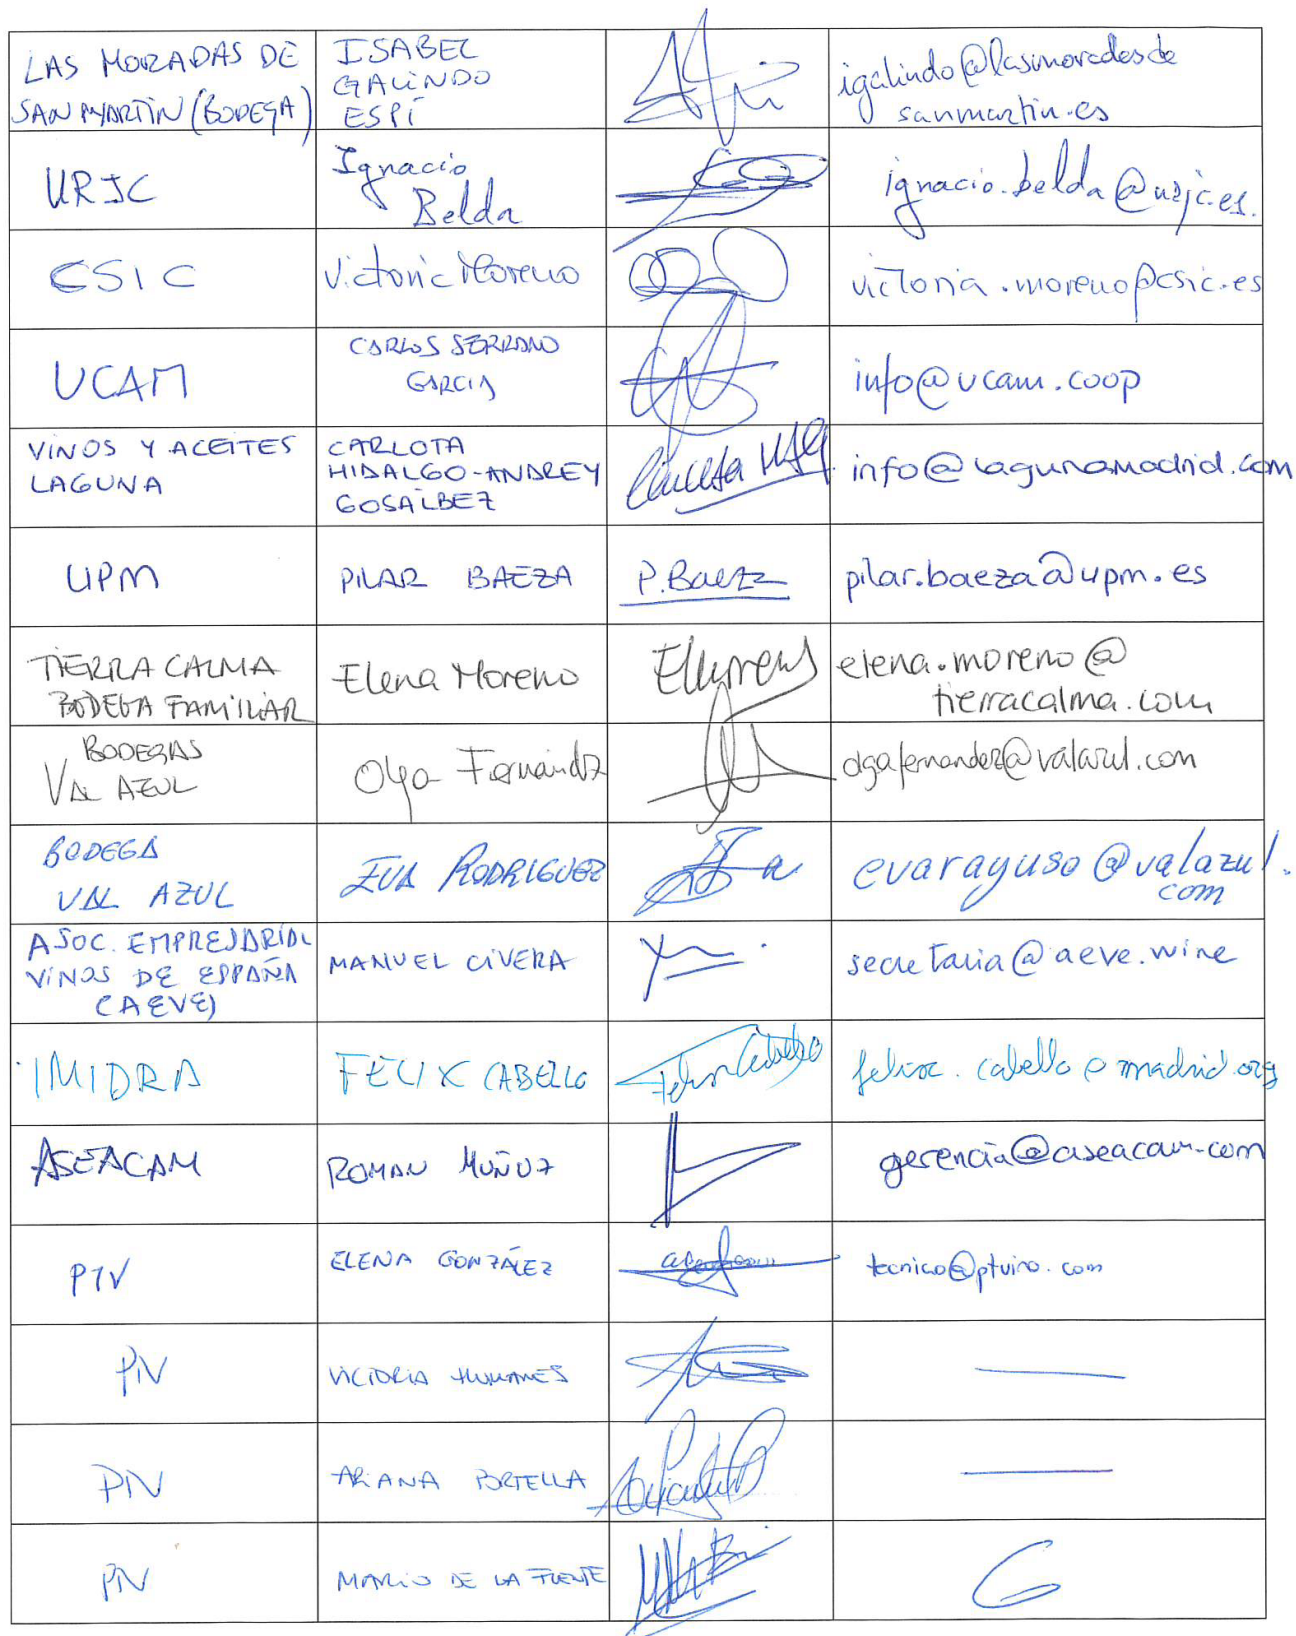 LAS MORADAS DE
SAN MARTÍN (BODEGA)
ISABEL
GALINDO
ESPÍ
igalindo@lasmoradasde
sanmartin.es
URJC
Ignacio
Belda
ignacio.belda@urjc.es.
CSIC
Victoria Moreno
victoria.moreno@csic.es
UCAM
CARLOS SERRANO
GARCIA
info@ucam.coop
VINOS Y ACEITES
LAGUNA
CARLOTA
HIDALGO-ANDREY
GOSÁLBEZ
info@lagunamadrid.com
UPM
PILAR BAEZA
P.Baeza
pilar.baeza@upm.es
TIERRA CALMA
BODEGA FAMILIAR
Elena Moreno
elena.moreno@
tierracalma.com
BODEGAS
VAL AZUL
Olga Fernández
olgafernandez@valazul.com
BODEGA
VAL AZUL
EVA RODRIGUEZ
evarayuso@valazul.
com
ASOC. EMPRESARIAL
VINOS DE ESPAÑA
(AEVE)
MANUEL CIVERA
secretaria@aeve.wine
IMIDRA
FÉLIX CABELLO
Felix Cabello
felix.cabello@madrid.org
ASEACAM
ROMAN MUÑOZ
gerencia@aseacam.com
PTV
ELENA GONZÁLEZ
tecnico@ptvino.com
PTV
VICTORIA HUMANES
PTV
ARIANA PORTELLA
PTV
MARIO DE LA FUENTE